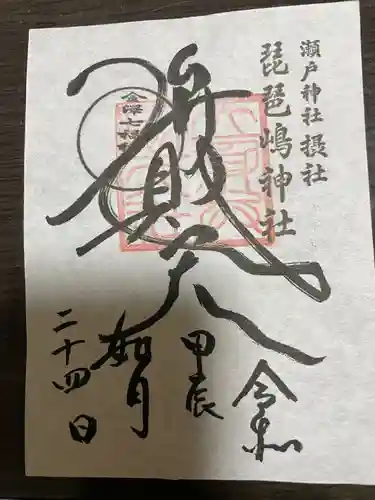 瀬戸神社 摂社
琵琶嶋神社
弁財天
令和
甲辰
如月
二十四日